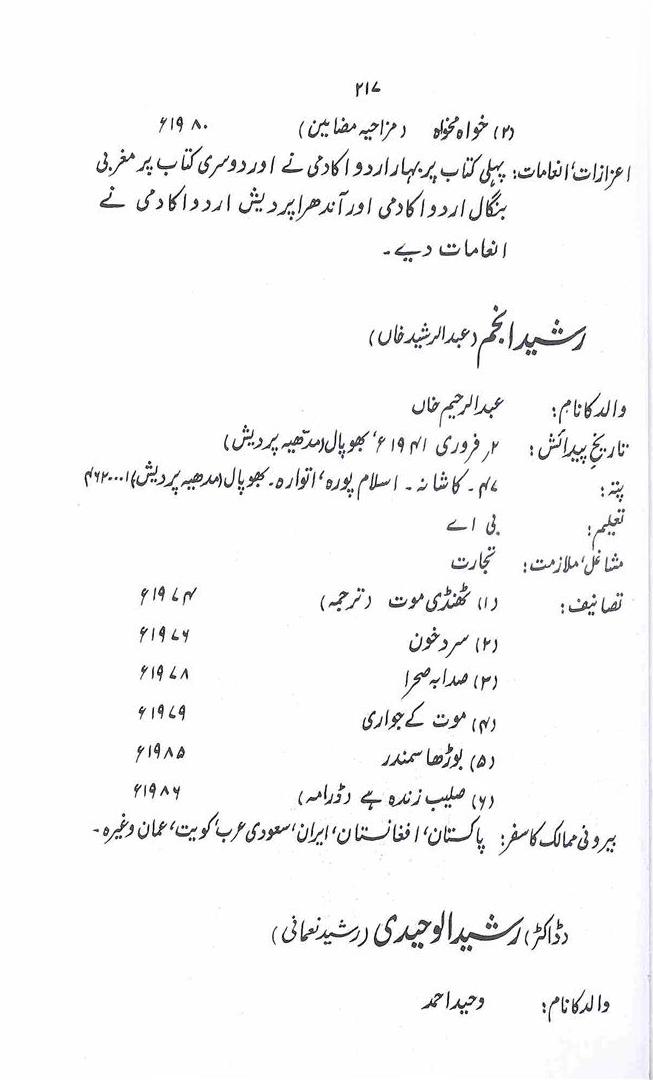 ۲۱۷
(۲) خواہ مخواہ (مزاحیہ مضامین) ۱۹۸۰ء
اعزازات، انعامات: پہلی کتاب پر بہار اردو اکادمی نے اور دوسری کتاب پر مغربی
بنگال اردو اکادمی اور آندھرا پردیش اردو اکادمی نے
انعامات دیے۔
رشید انجم (عبدالرشید خاں)
والد کا نام: عبدالرحیم خاں
تاریخ پیدائش: ۲؍ فروری ۱۹۴۱ء، بھوپال (مدھیہ پردیش)
پتہ: ۴۷۔ کاشانہ۔ اسلام پورہ، اتوارہ۔ بھوپال (مدھیہ پردیش) ۴۶۲۰۰۱
تعلیم: بی اے
مشاغل، ملازمت: تجارت
تصانیف: (۱) ٹھنڈی موت (ترجمہ) ۱۹۷۴ء
(۲) سرد خون ۱۹۷۶ء
(۳) صدا بہ صحرا ۱۹۷۸ء
(۴) موت کے جواری ۱۹۷۹ء
(۵) بوڑھا سمندر ۱۹۸۵ء
(۶) صلیب زندہ ہے (ڈرامہ) ۱۹۸۶ء
بیرونی ممالک کا سفر: پاکستان، افغانستان، ایران، سعودی عرب، کویت، عمان وغیرہ۔
(ڈاکٹر) رشید الوحیدی (رشید نعمانی)
والد کا نام: وحید احمد